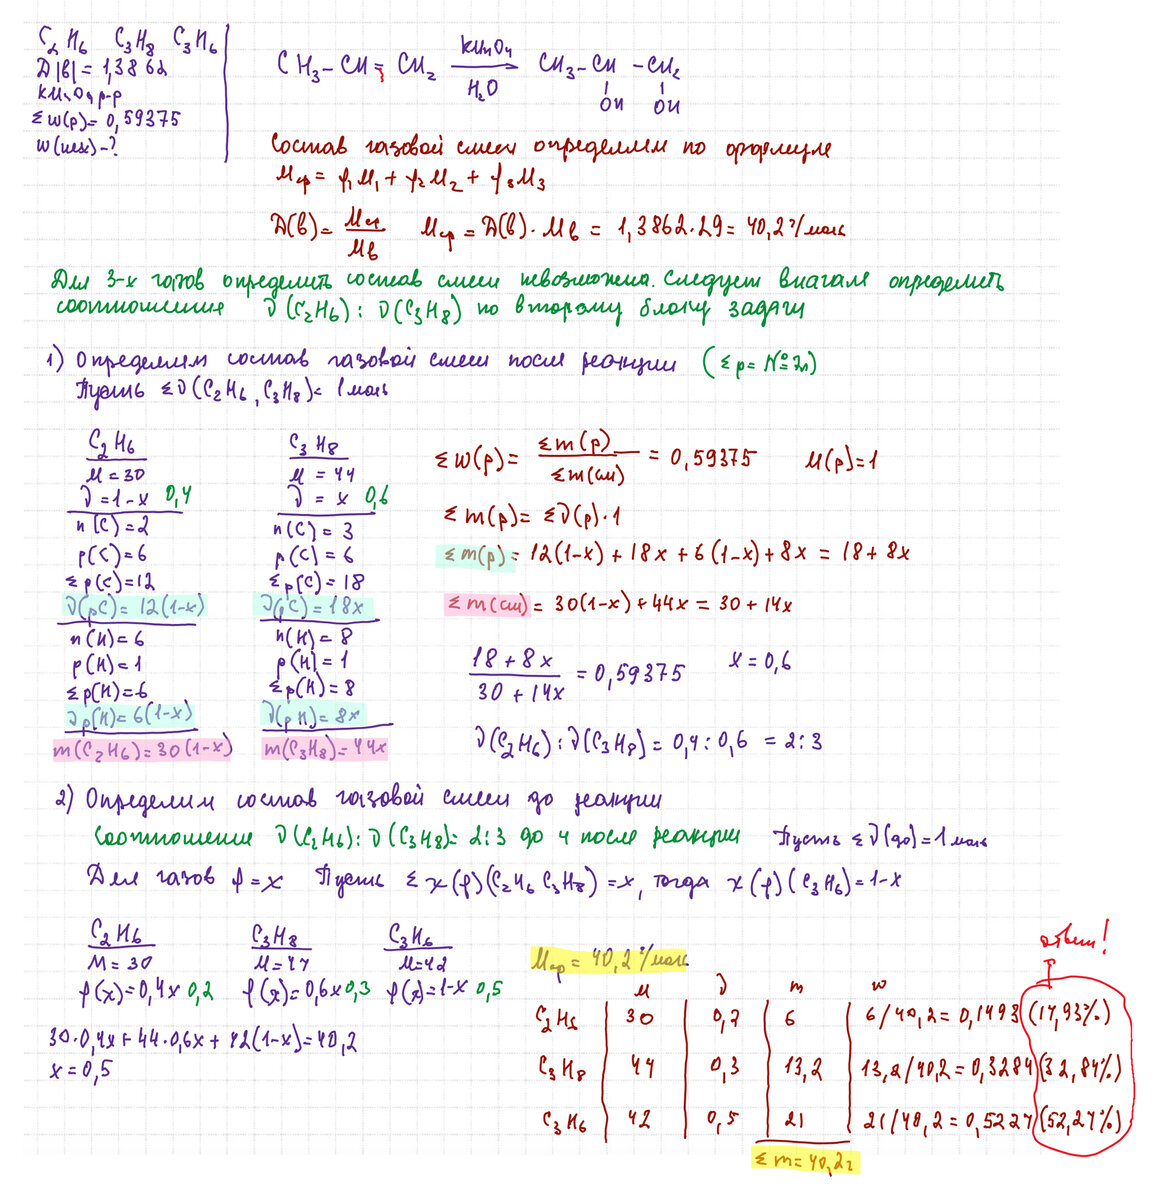 C₂H₆ C₃H₈ C₃H₆
D(в)=1,3862
KMnO₄, р-р
Σw(p)=0,59375
w(исх)-?
CH₃-CH=CH₂ —KMnO₄/H₂O→ CH₃-CH-CH₂
OH OH
Состав газовой смеси определяем по формуле
Mср= φ₁M₁ + φ₂M₂ + φ₃M₃
D(в)= Mср/Mв Mср=D(в)·Mв = 1,3862·29= 40,2 г/моль
Для 3-х газов определить состав смеси невозможно. Следует вначале определить
соотношение ν(C₂H₆):ν(C₃H₈) по второму блоку задачи
1) Определяем состав газовой смеси после реакции (Σp= №эл)
Пусть Σν(C₂H₆,C₃H₈)=1моль
C₂H₆
M=30
ν=1-x 0,4
n(C)=2
p(C)=6
Σp(C)=12
ν(pC)=12(1-x)
n(H)=6
p(H)=1
Σp(H)=6
νp(H)=6(1-x)
m(C₂H₆)=30(1-x)
C₃H₈
M=44
ν=x 0,6
n(C)=3
p(C)=6
Σp(C)=18
ν(pC)=18x
n(H)=8
p(H)=1
Σp(H)=8
ν(pH)=8x
m(C₃H₈)=44x
Σw(p)= Σm(p)/Σm(см) = 0,59375 M(p)=1
Σm(p)= Σν(p)·1
Σm(p)= 12(1-x)+18x+6(1-x)+8x = 18+8x
Σm(см)= 30(1-x)+44x= 30+14x
(18+8x)/(30+14x) = 0,59375 x=0,6
ν(C₂H₆):ν(C₃H₈)=0,4:0,6 = 2:3
2) Определим состав газовой смеси до реакции
Соотношение ν(C₂H₆):ν(C₃H₈)=2:3 до и после реакции Пусть Σν(до)=1моль
Для газов φ=x Пусть Σx(φ)(C₂H₆ C₃H₈)=x, тогда x(φ)(C₃H₆)=1-x
C₂H₆ C₃H₈ C₃H₆
M=30 M=44 M=42
φ(x)=0,4x 0,2 φ(x)=0,6x 0,3 φ(x)=1-x 0,5
30·0,4x+44·0,6x+42(1-x)=40,2
x=0,5
Mср = 40,2 г/моль
ответ!
M ν m w
C₂H₆ 30 0,2 6 6/40,2=0,1493 (14,93%)
C₃H₈ 44 0,3 13,2 13,2/40,2=0,3284 (32,84%)
C₃H₆ 42 0,5 21 21/40,2=0,5224 (52,24%)
Σm=40,2г